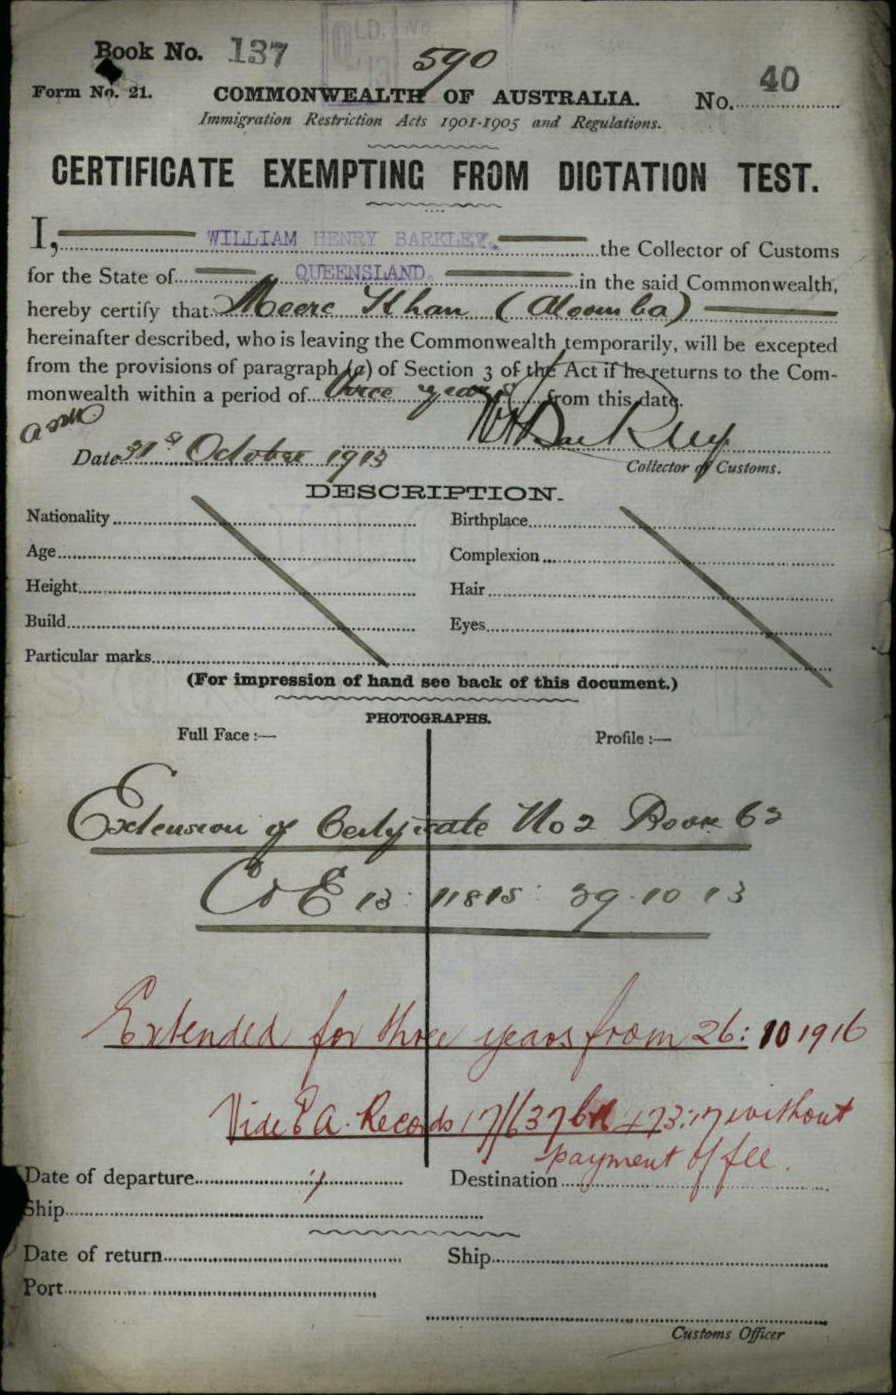 Book No. 137
590
Form No. 21.
COMMONWEALTH OF AUSTRALIA.
No. 40
Immigration Restriction Acts 1901-1905 and Regulations.
CERTIFICATE EXEMPTING FROM DICTATION TEST.
I, WILLIAM HENRY BARKLEY. the Collector of Customs
for the State of QUEENSLAND. in the said Commonwealth,
hereby certify that Meere Khan (Aloomba)
hereinafter described, who is leaving the Commonwealth temporarily, will be excepted
from the provisions of paragraph (a) of Section 3 of the Act if he returns to the Com-
monwealth within a period of three years from this date.
WHBarkley
Date 31st October 1913
Collector of Customs.
DESCRIPTION.
Nationality
Birthplace
Age
Complexion
Height
Hair
Build
Eyes
Particular marks
(For impression of hand see back of this document.)
PHOTOGRAPHS.
Full Face :—
Profile :—
Extension of Certificate No 2 Book 62
C & E 13: 11815: 29.10 13
Extended for three years from 26: 10 1916
Vide E A. Records 17/6376 73:17 without
payment of fee.
Date of departure
Destination
Ship
Date of return
Ship
Port
Customs Officer